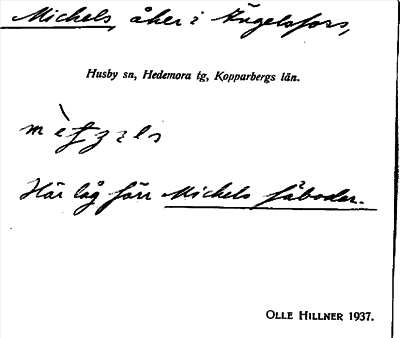 Michels, åker i Ängelsfors,
Husby sn, Hedemora tg, Kopparbergs län.
Här låg förr Michels fäboder.
OLLE HILLNER 1937.